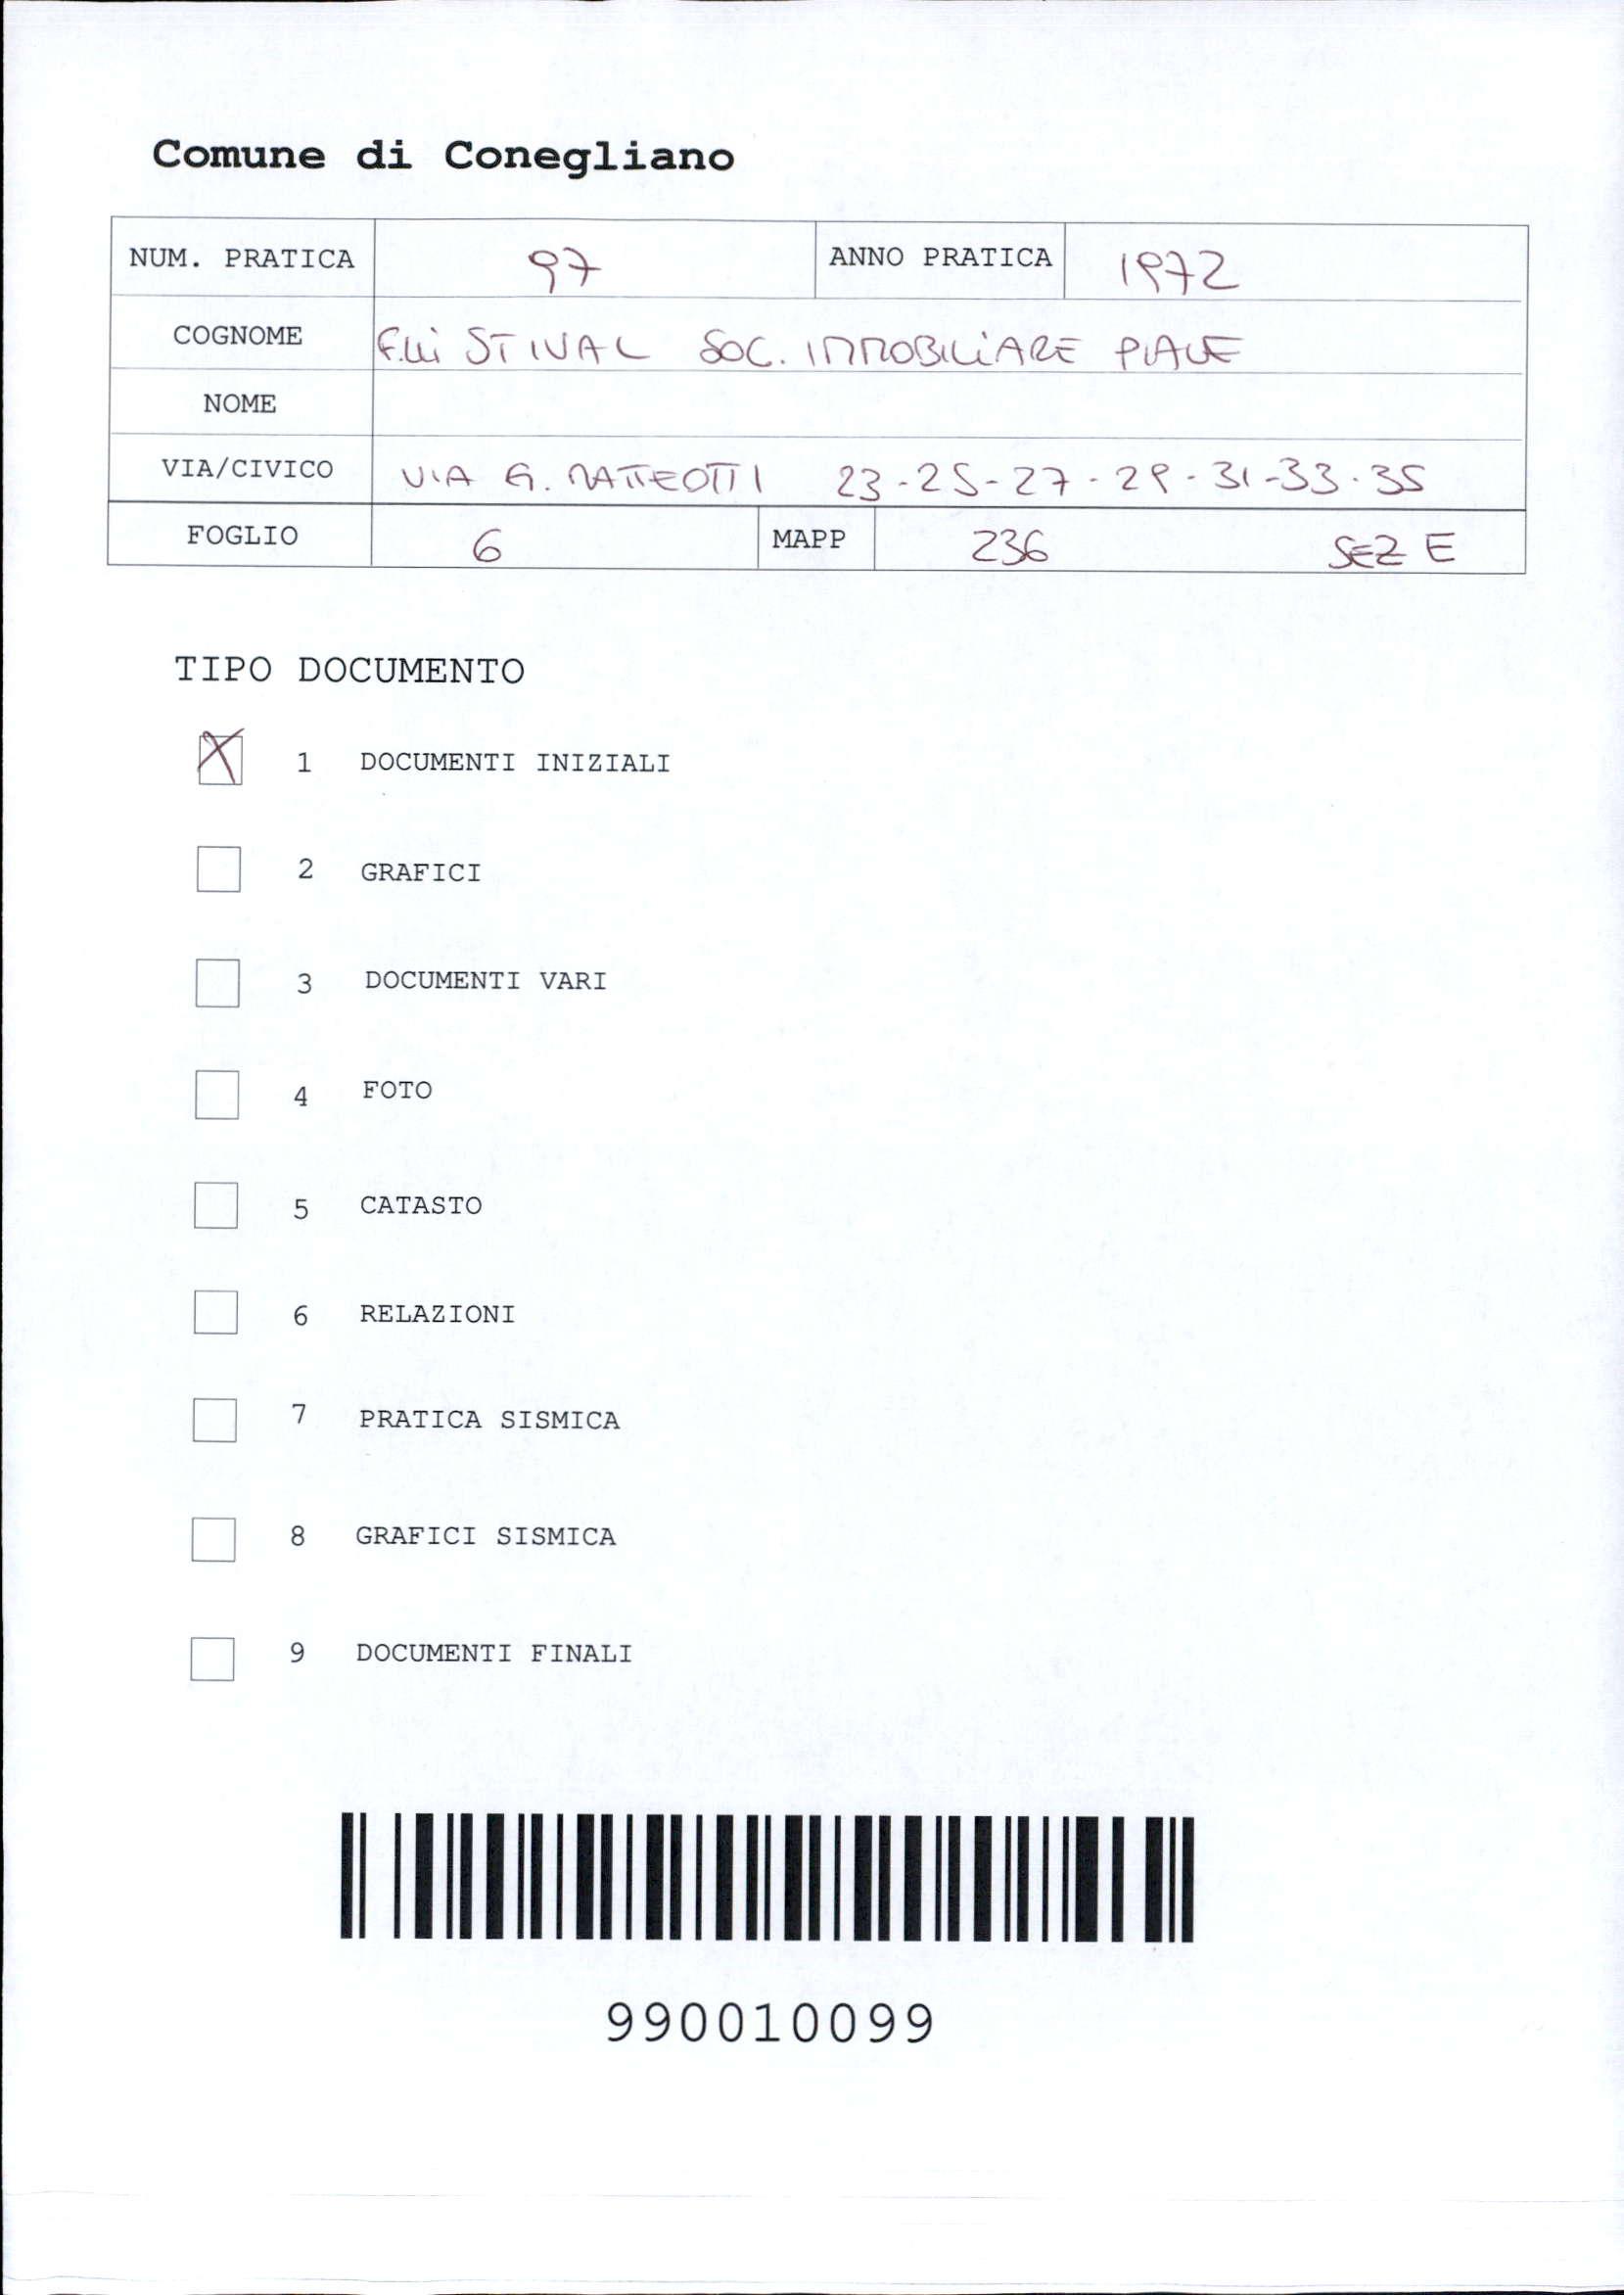 Comune di Conegliano
NUM. PRATICA 97 ANNO PRATICA 1972
COGNOME F.lli STIVAL SOC. IMMOBILIARE PIAVE
NOME
VIA/CIVICO VIA G. MATTEOTTI 23-25-27-29-31-33-35
FOGLIO 6 MAPP 236 SEZ E
TIPO DOCUMENTO
X 1 DOCUMENTI INIZIALI
2 GRAFICI
3 DOCUMENTI VARI
4 FOTO
5 CATASTO
6 RELAZIONI
7 PRATICA SISMICA
8 GRAFICI SISMICA
9 DOCUMENTI FINALI
990010099